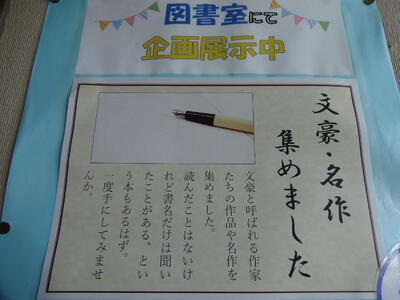 図書室にて
企画展示中
文豪・名作
集めました
文豪と呼ばれる作家
たちの作品や名作を
集めました。
読んだことはないけ
れど書名だけは聞い
たことがある、とい
う本もあるはず。
一度手にしてみませ
んか。